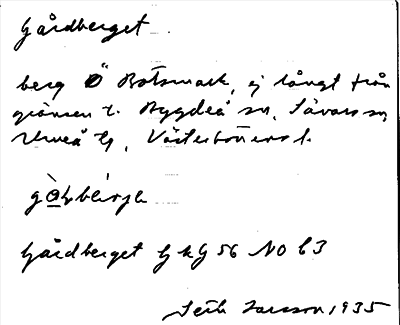 Gårdberget.
berg Ö Botsmark, ej långt från
gränsen t. Bygdeå sn, Sävars sn,
Umeå tg, Västerbottens l.
Gårdberget GkG 56 NO b3
Larsson 1935